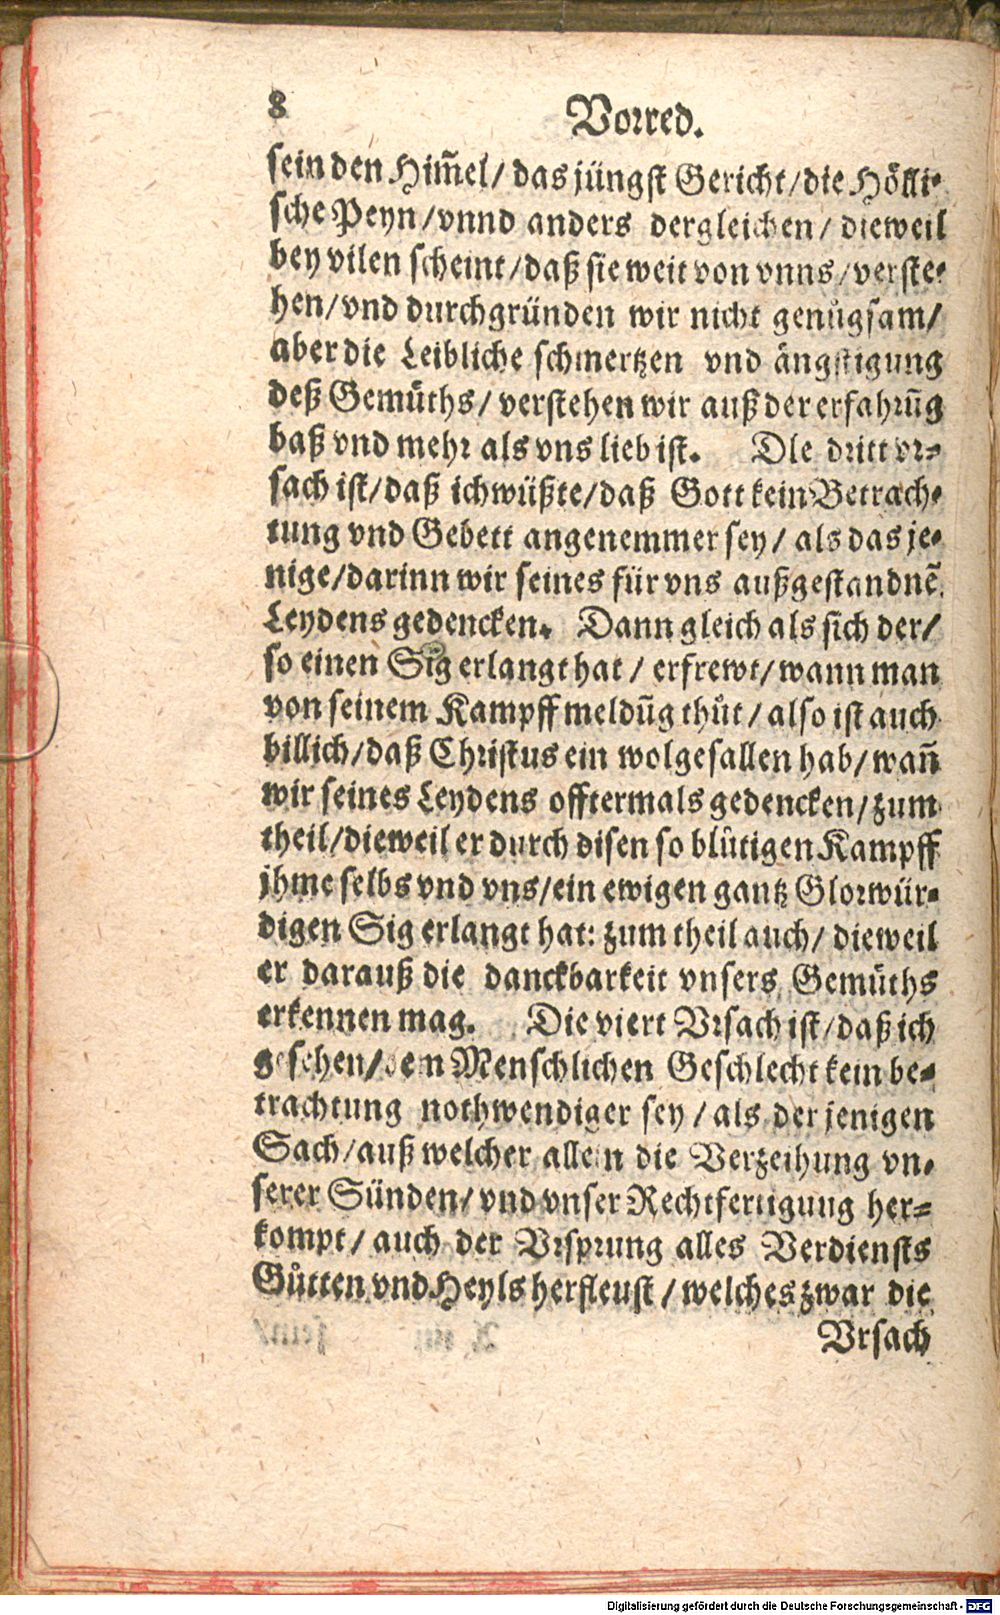 8 Vorred.
sein den Him̃el/ das jüngst Gericht/die Hölli-
sche Peyn/vnnd anders dergleichen/ dieweil
bey vilen scheint/daß sie weit von vnns/verste-
hen/vnd durchgründen wir nicht genůgsam/
aber die Leibliche schmertzen vnd ängstigung
deß Gemüths/ verstehen wir auß der erfahrũg
baß vnd mehr als vns lieb ist. DIe dritt vr-
sach ist/daß ich wüßte/daß Gott kein Betrach-
tung vnd Gebett angenemmer sey/ als das je-
nige/darinn wir seines für vns außgestandnẽ
Leydens gedencken. Dann gleich als sich der/
so einen Sig erlangt hat/ erfrewt/wann man
von seinem Kampff meldũg thůt/also ist auch
billich/daß Christus ein wolgefallen hab/wañ
wir seines Leydens offtermals gedencken/zum
theil/dieweil er durch disen so blůtigen Kampff
jhme selbs vnd vns/ein ewigen gantz Glorwür-
digen Sig erlangt hat: zum theil auch/ dieweil
er darauß die danckbarkeit vnsers Gemüths
erkennen mag. Die viert Vrsach ist/daß ich
gesehen/dem Menschlichen Geschlecht kein be-
trachtung nothwendiger sey/als der jenigen
Sach/auß welcher allein die Verzeihung vn-
serer Sünden/vnd vnser Rechtfertigung her-
kompt/auch der Vrsprung alles Verdiensts
Gůtten vnd Heyls herfleust/welches zwar die
Vrsach
Digitalisierung gefördert durch die Deutsche Forschungsgemeinschaft - DFG